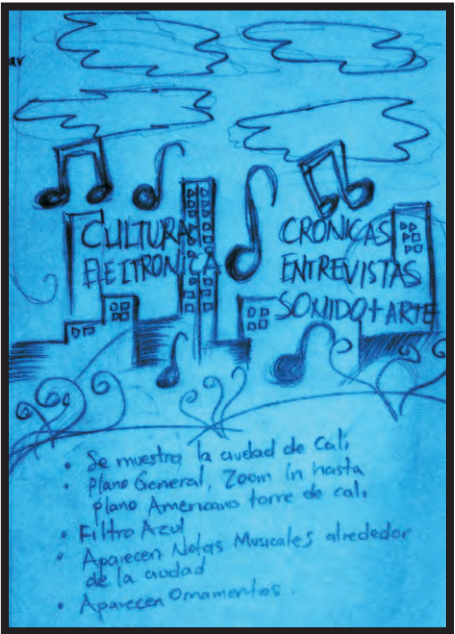 ar
CULTURA
ELEITRONICA
CRÓNICAS
ENTREVISTAS
SONIDO + ARTE
• Se muestra la ciudad de Cali
• Plano General, Zoom in hasta
plano Americano torre de cali
• Filtro Azul
• Aparecen Notas Musicales alrededor
de la ciudad
• Aparecen Ornamentos.